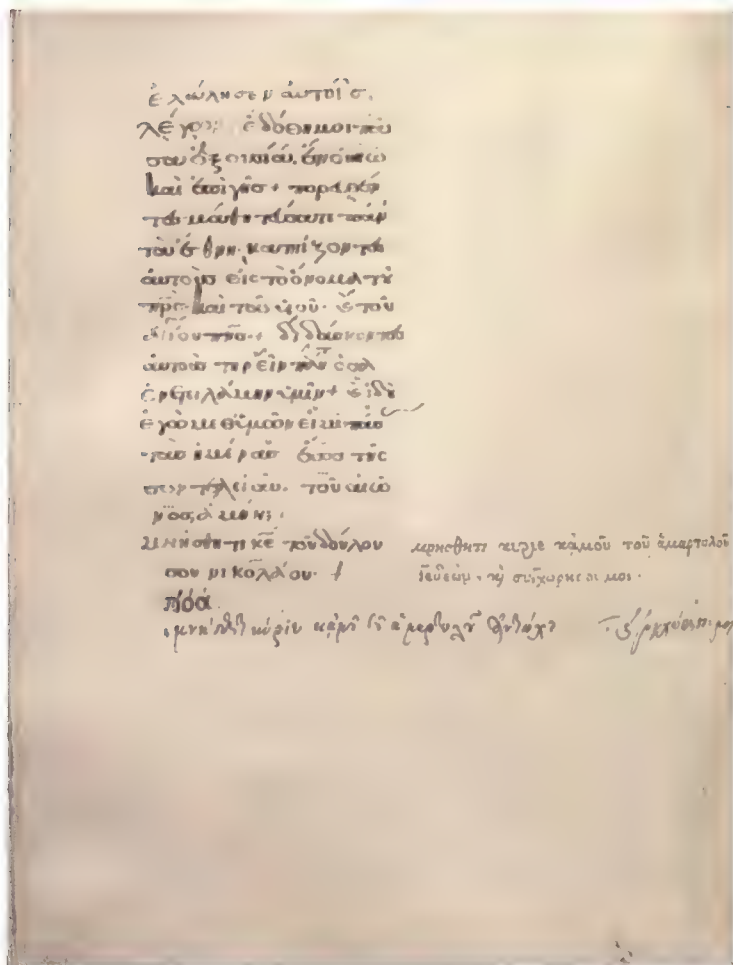 ἐλάλησεν αὐτοῖς
λέγων, ἐδόθη μοι πᾶ
σα ἐξουσία, ἐν οὐνῶ
καὶ ἐπὶ γῆς + πορευθέν
τες μαθητεύσατε πάν
τα τὰ ἔθνη, βαπτίζοντες
αὐτοὺς εἰς τὸ ὄνομα τοῦ
πρς καὶ τοῦ υἱοῦ. καὶ τοῦ
ἁγίου πνς + διδάσκοντες
αὐτοὺς τηρεῖν πάντα ὅσα
ἐνετειλάμην ὑμῖν + καὶ ἰδοὺ
ἐγὼ μεθ' ὑμῶν εἰμι πάσας
τὰς ἡμέρας ἕως τῆς
συντελείας. τοῦ αἰῶ
νος, ἀμήν:
μνήσθητι κε τοῦ δούλου μνησθητι κυριε κἀμοῦ τοῦ ἁμαρτολοῦ
σου νικολάου. καὶ συγχωρησοι μοι.
κἀμοῦ τοῦ